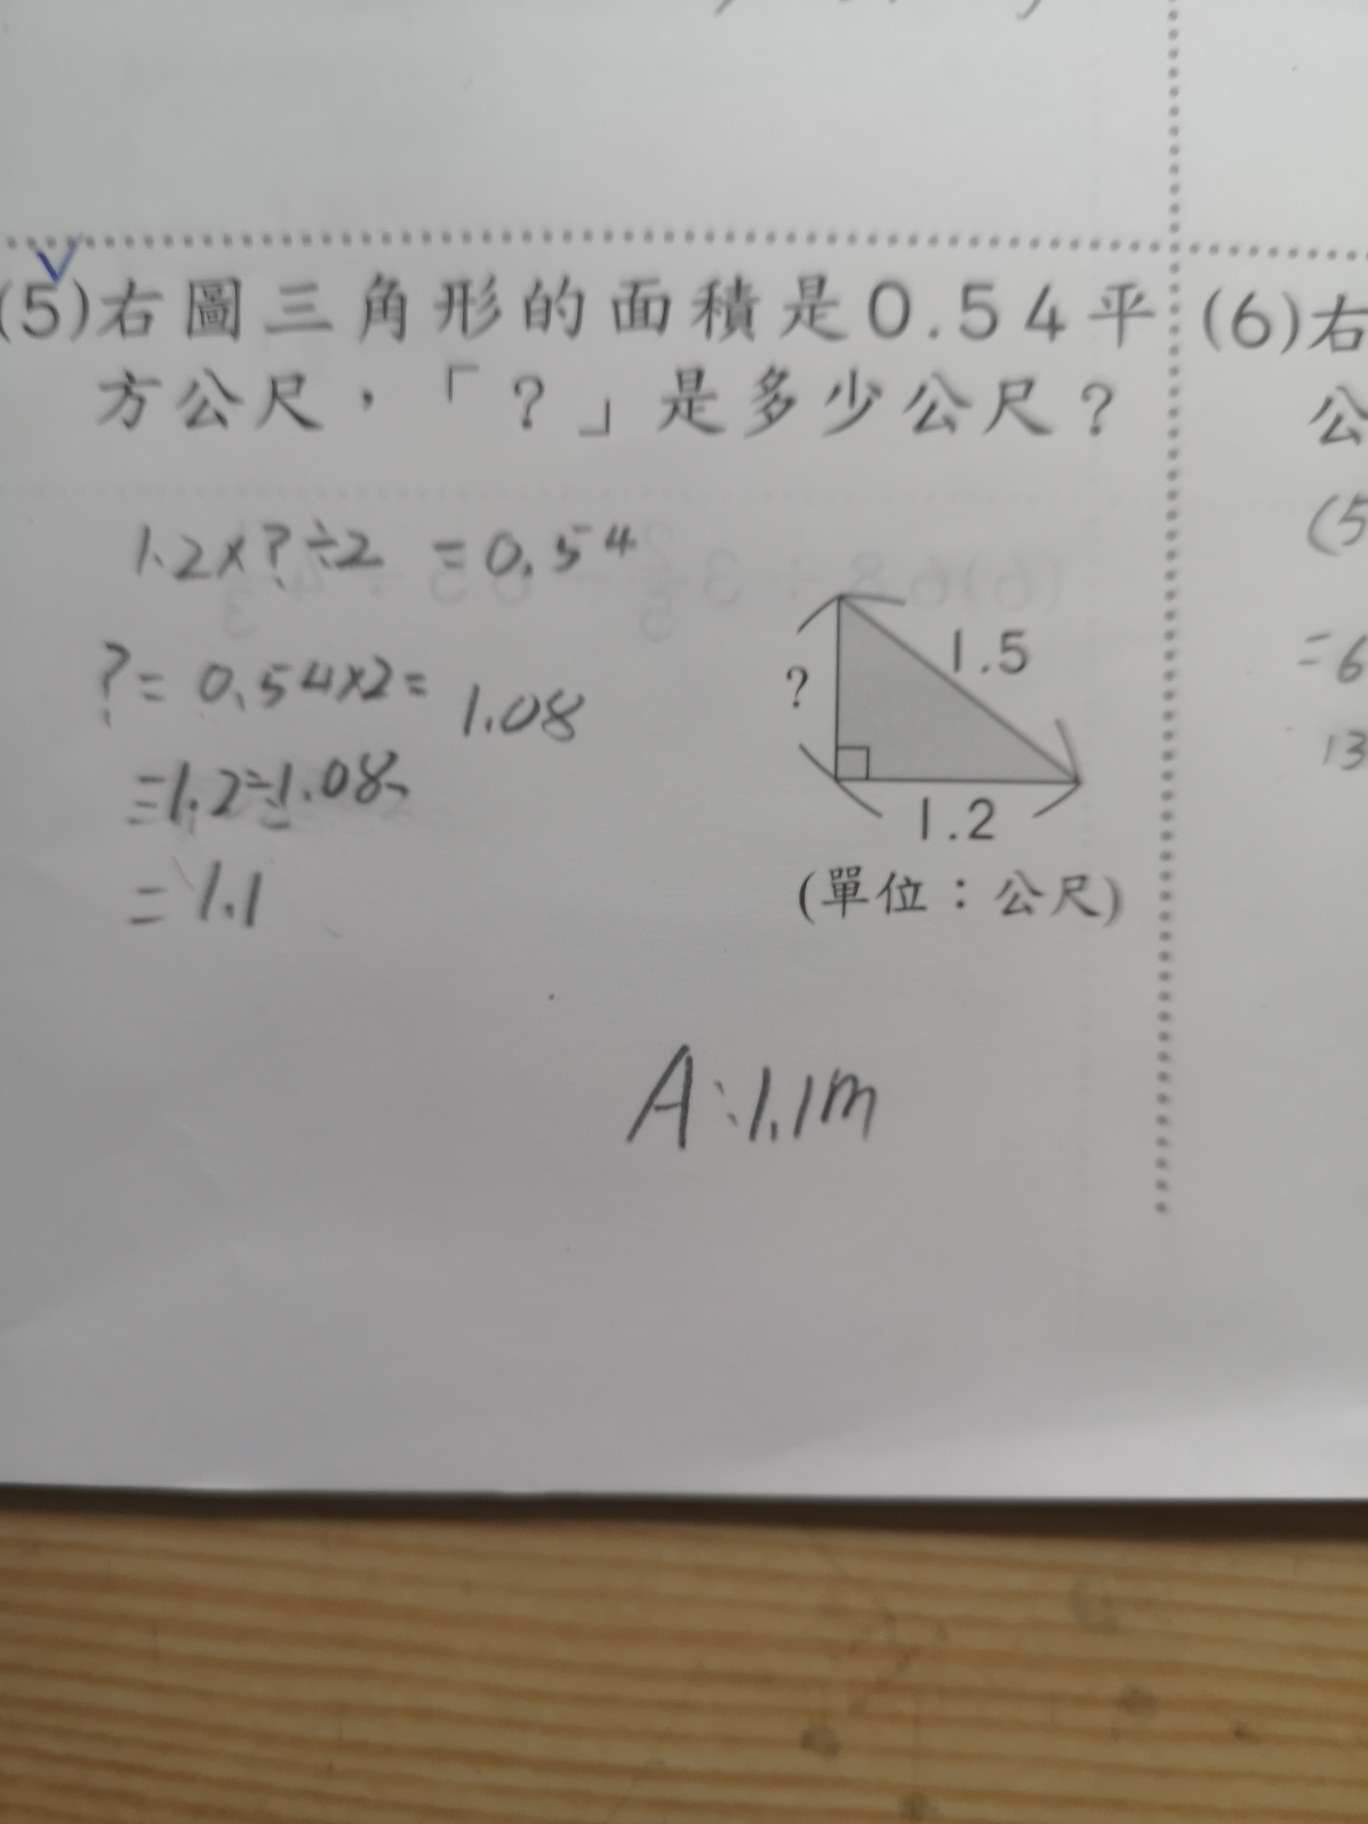 (5)右圖三角形的面積是0.54平
方公尺，「?」是多少公尺?
1.2×?÷2 = 0.54
?= 0.54×2= 1.08
=1.2÷1.08
= 1.1
?
1.5
1.2
(單位：公尺)
A:1.1m
(6)右
公
(5
=6
13